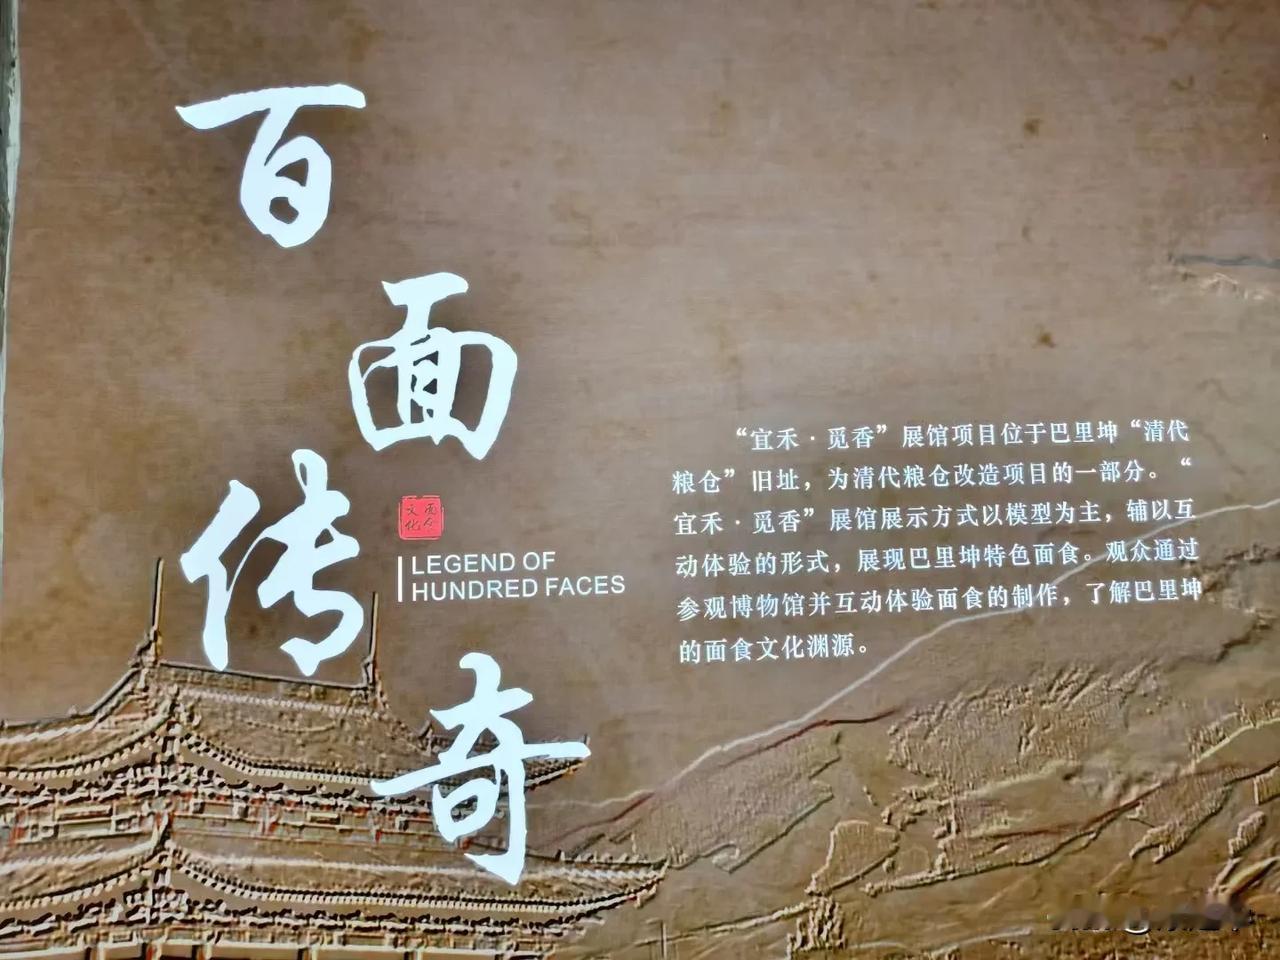 百面传奇
面食文化
LEGEND OF
HUNDRED FACES
“宜禾·觅香”展馆项目位于巴里坤“清代
粮仓”旧址，为清代粮仓改造项目的一部分。“
宜禾·觅香”展馆展示方式以模型为主，辅以互
动体验的形式，展现巴里坤特色面食。观众通过
参观博物馆并互动体验面食的制作，了解巴里坤
的面食文化渊源。